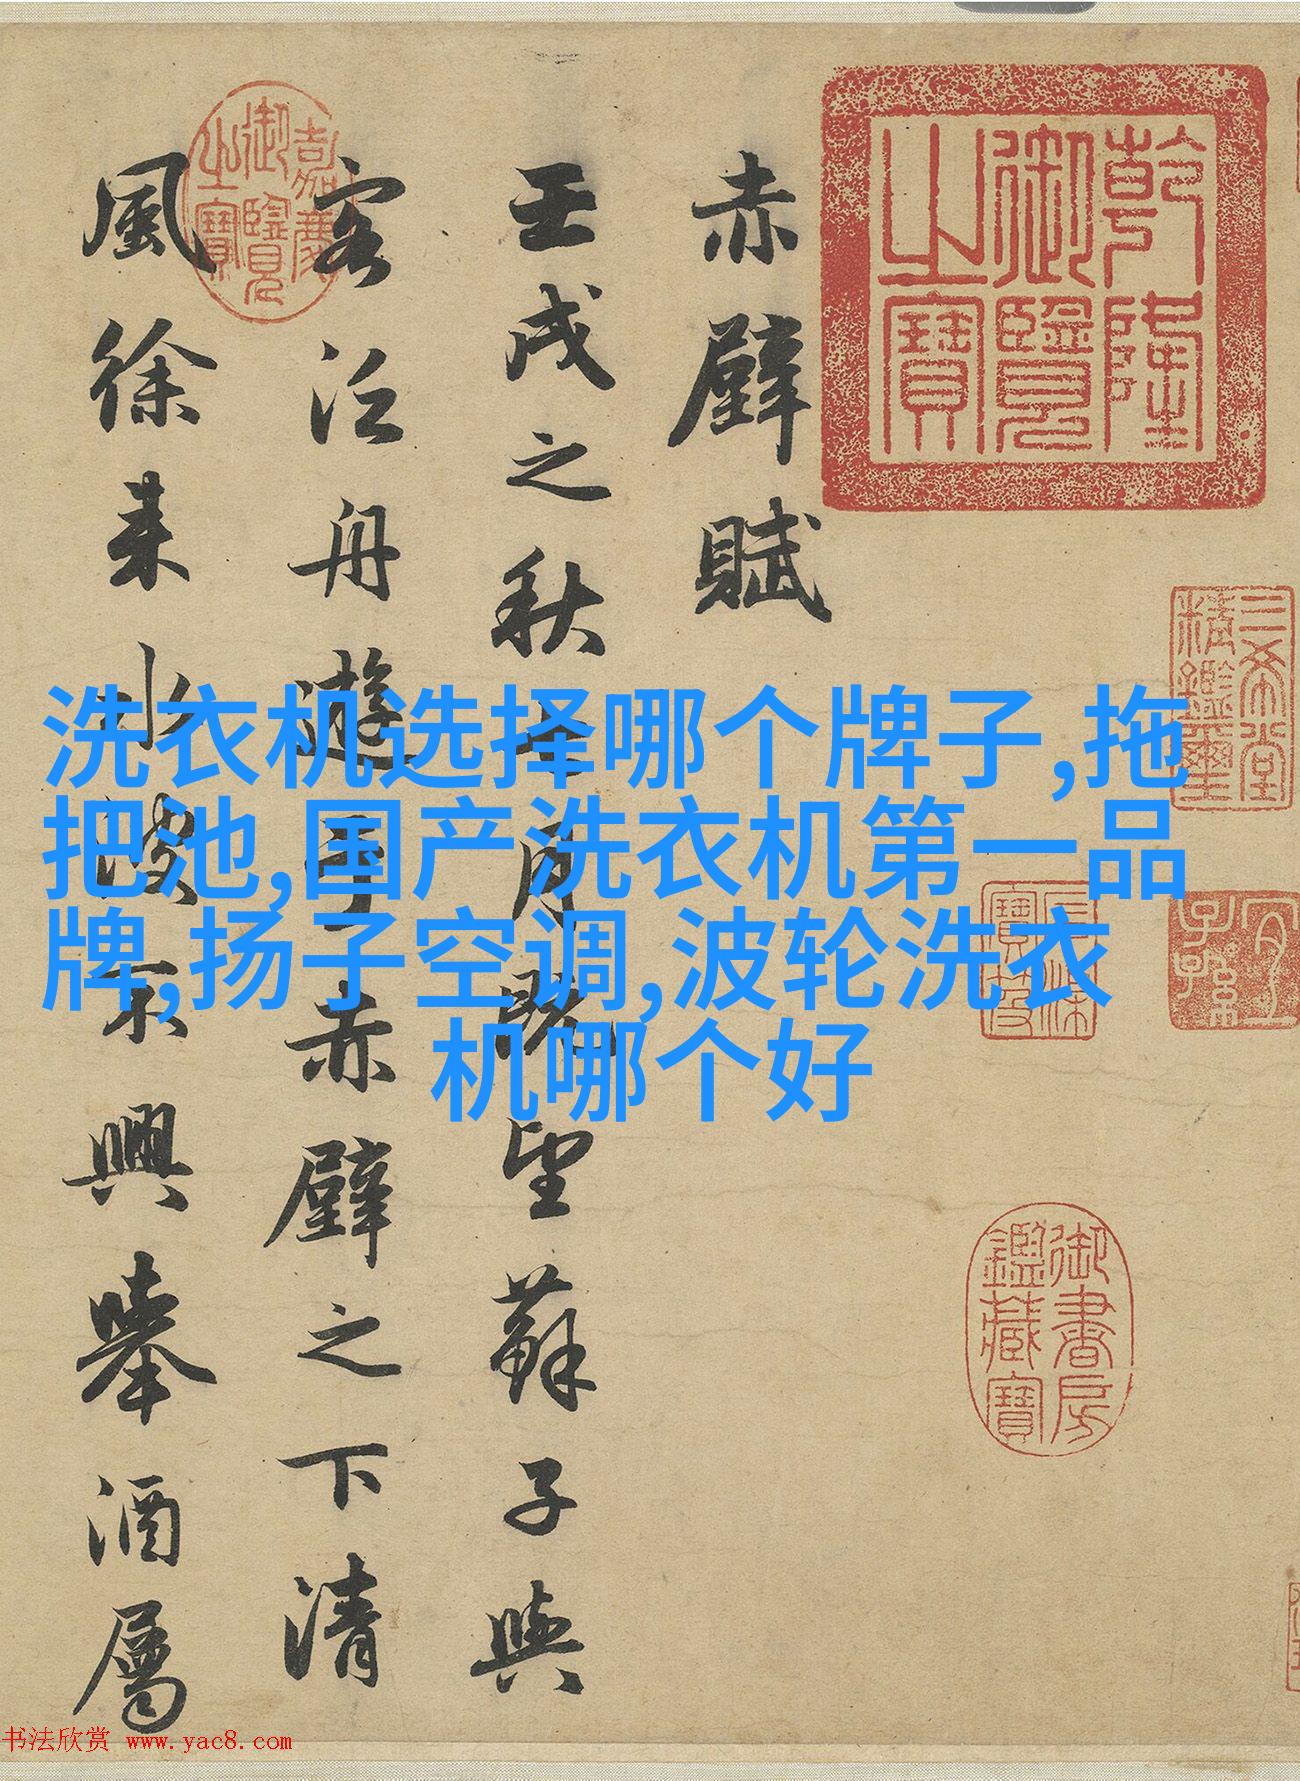 赤壁賦
壬戌之秋七月既望蘇子與
客泛舟遊于赤壁之下清
風徐來水波不興舉酒屬
乾隆御覽之寶
嘉慶御覽之寶
三希堂精鑑璽
宜子孫
御書房鑑藏寶
洗衣机选择哪个牌子,拖
把池,国产洗衣机第一品
牌,扬子空调,波轮洗衣
机哪个好
书法欣赏 www.yac8.com